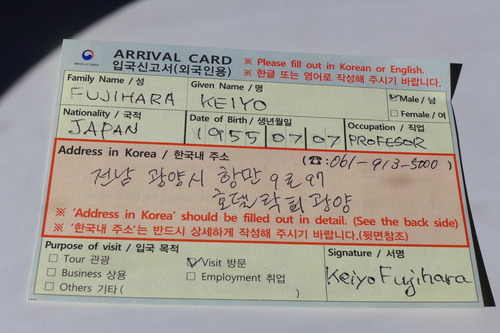 ARRIVAL CARD
입국신고서(외국인용)
※ Please fill out in Korean or English.
※ 한글 또는 영어로 작성해 주시기 바랍니다.
Family Name / 성
FUJIHARA
Given Name / 명
KEIYO
☑ Male / 남
☐ Female / 여
Nationality / 국적
JAPAN
Date of Birth / 생년월일
1955 07 07
Occupation / 직업
PROFESOR
Address in Korea / 한국내 주소
(☎: 061-913-5000 )
전남 광양시 항만 9로 97
호텔 락희 광양
※ 'Address in Korea' should be filled out in detail. (See the back side)
※ '한국내 주소'는 반드시 상세하게 작성해 주시기 바랍니다.(뒷면참조)
Purpose of visit / 입국 목적
☐ Tour 관광
☑ Visit 방문
☐ Business 상용
☐ Employment 취업
☐ Others 기타 ( )
Signature / 서명
Keiyo Fujihara